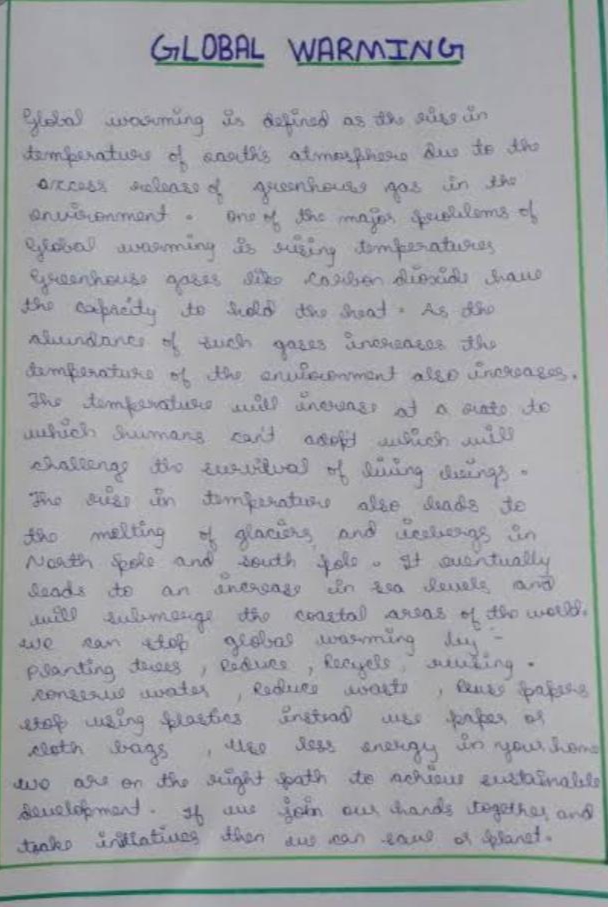 GLOBAL WARMING
Global warming is defined as the rise in
temperature of earth's atmosphere due to the
excess release of greenhouse gas in the
environment. One of the major problems of
Global warming is rising temperatures
Greenhouse gases like carbon dioxide have
the capacity to hold the heat. As the
abundance of such gases increases the
temperature of the environment also increases.
The temperature will increase at a rate to
which humans can't adopt which will
challenge the survival of living beings.
The rise in temperature also leads to
the melting of glaciers and icebergs in
North pole and south pole. It eventually
leads to an increase in sea levels and
will submerge the coastal areas of the world.
we can stop global warming by -
Planting trees, Reduce, Recycle, reusing.
conserve water, Reduce waste, Reuse papers
stop using plastics instead use paper or
cloth bags, Use less energy in your home
we are on the right path to achieve sustainable
development. If we join our hands together and
take initiatives then we can save or planet.